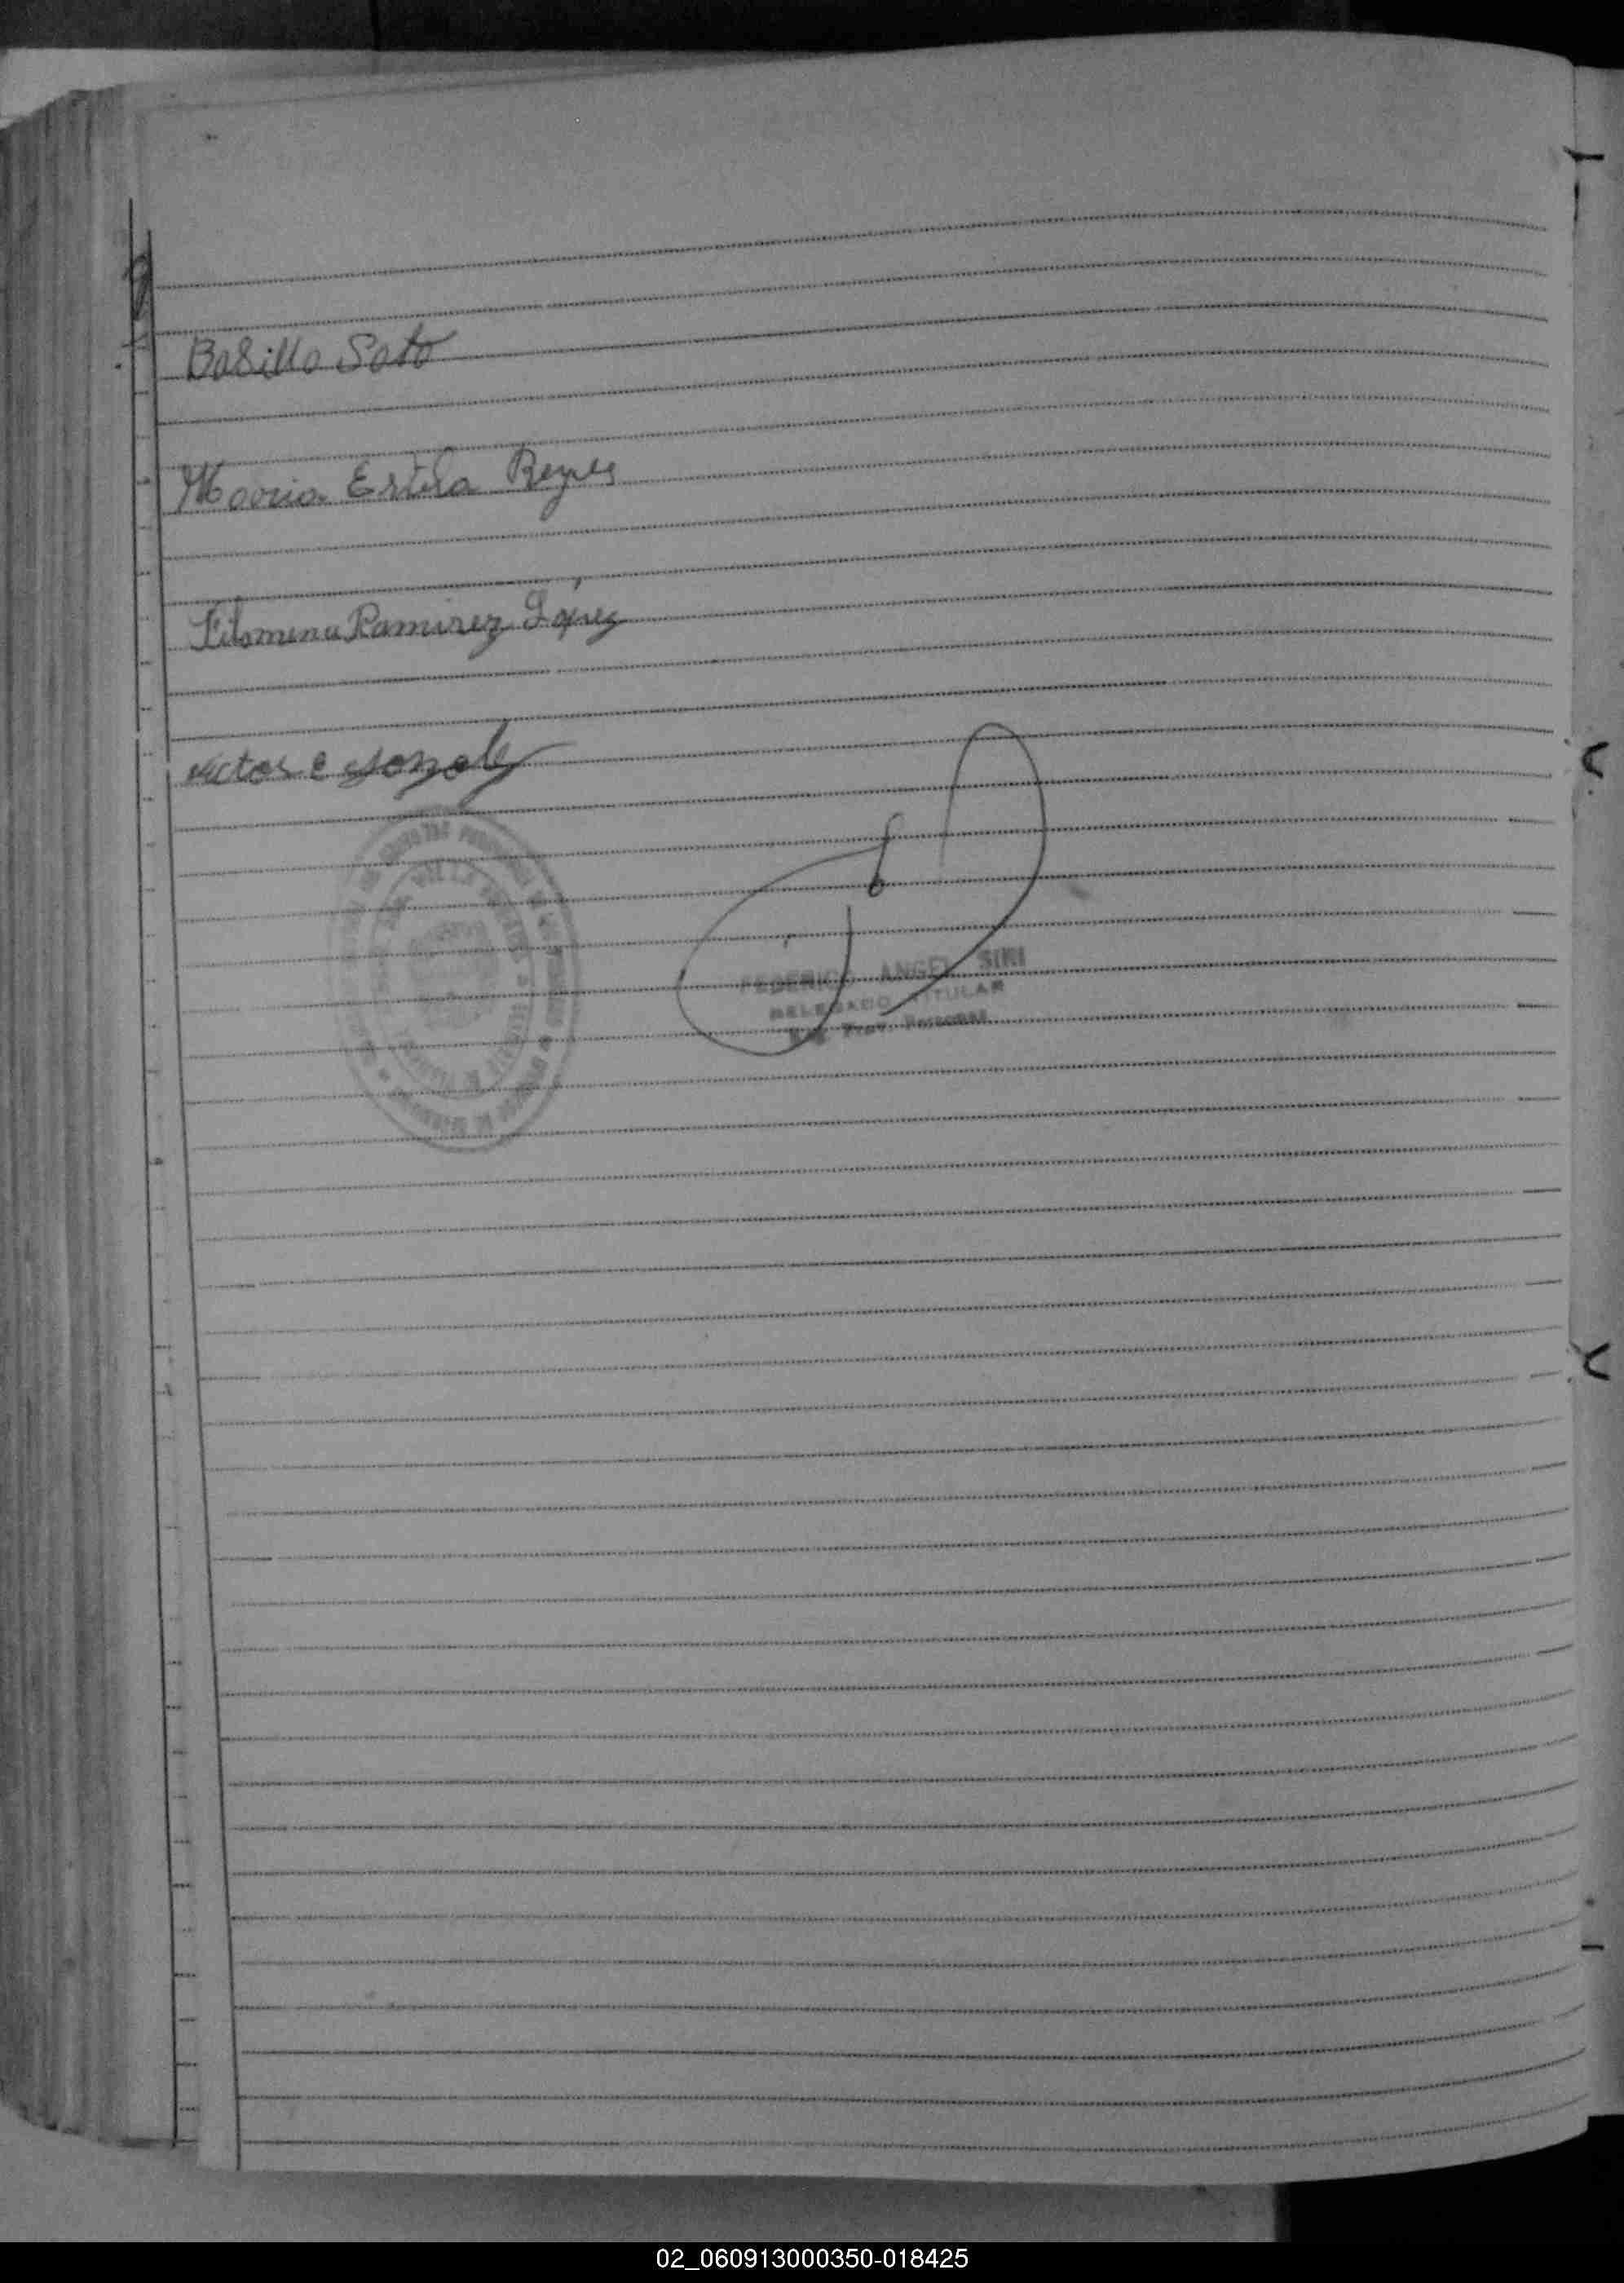 Basilio Soto
Maria Estela Reyes
Filomena Ramirez López
victor e gonzalez
FEDERICO ANGEL SIRI
DELEGADO TITULAR
Reg. Prov. Personas
02_060913000350-018425